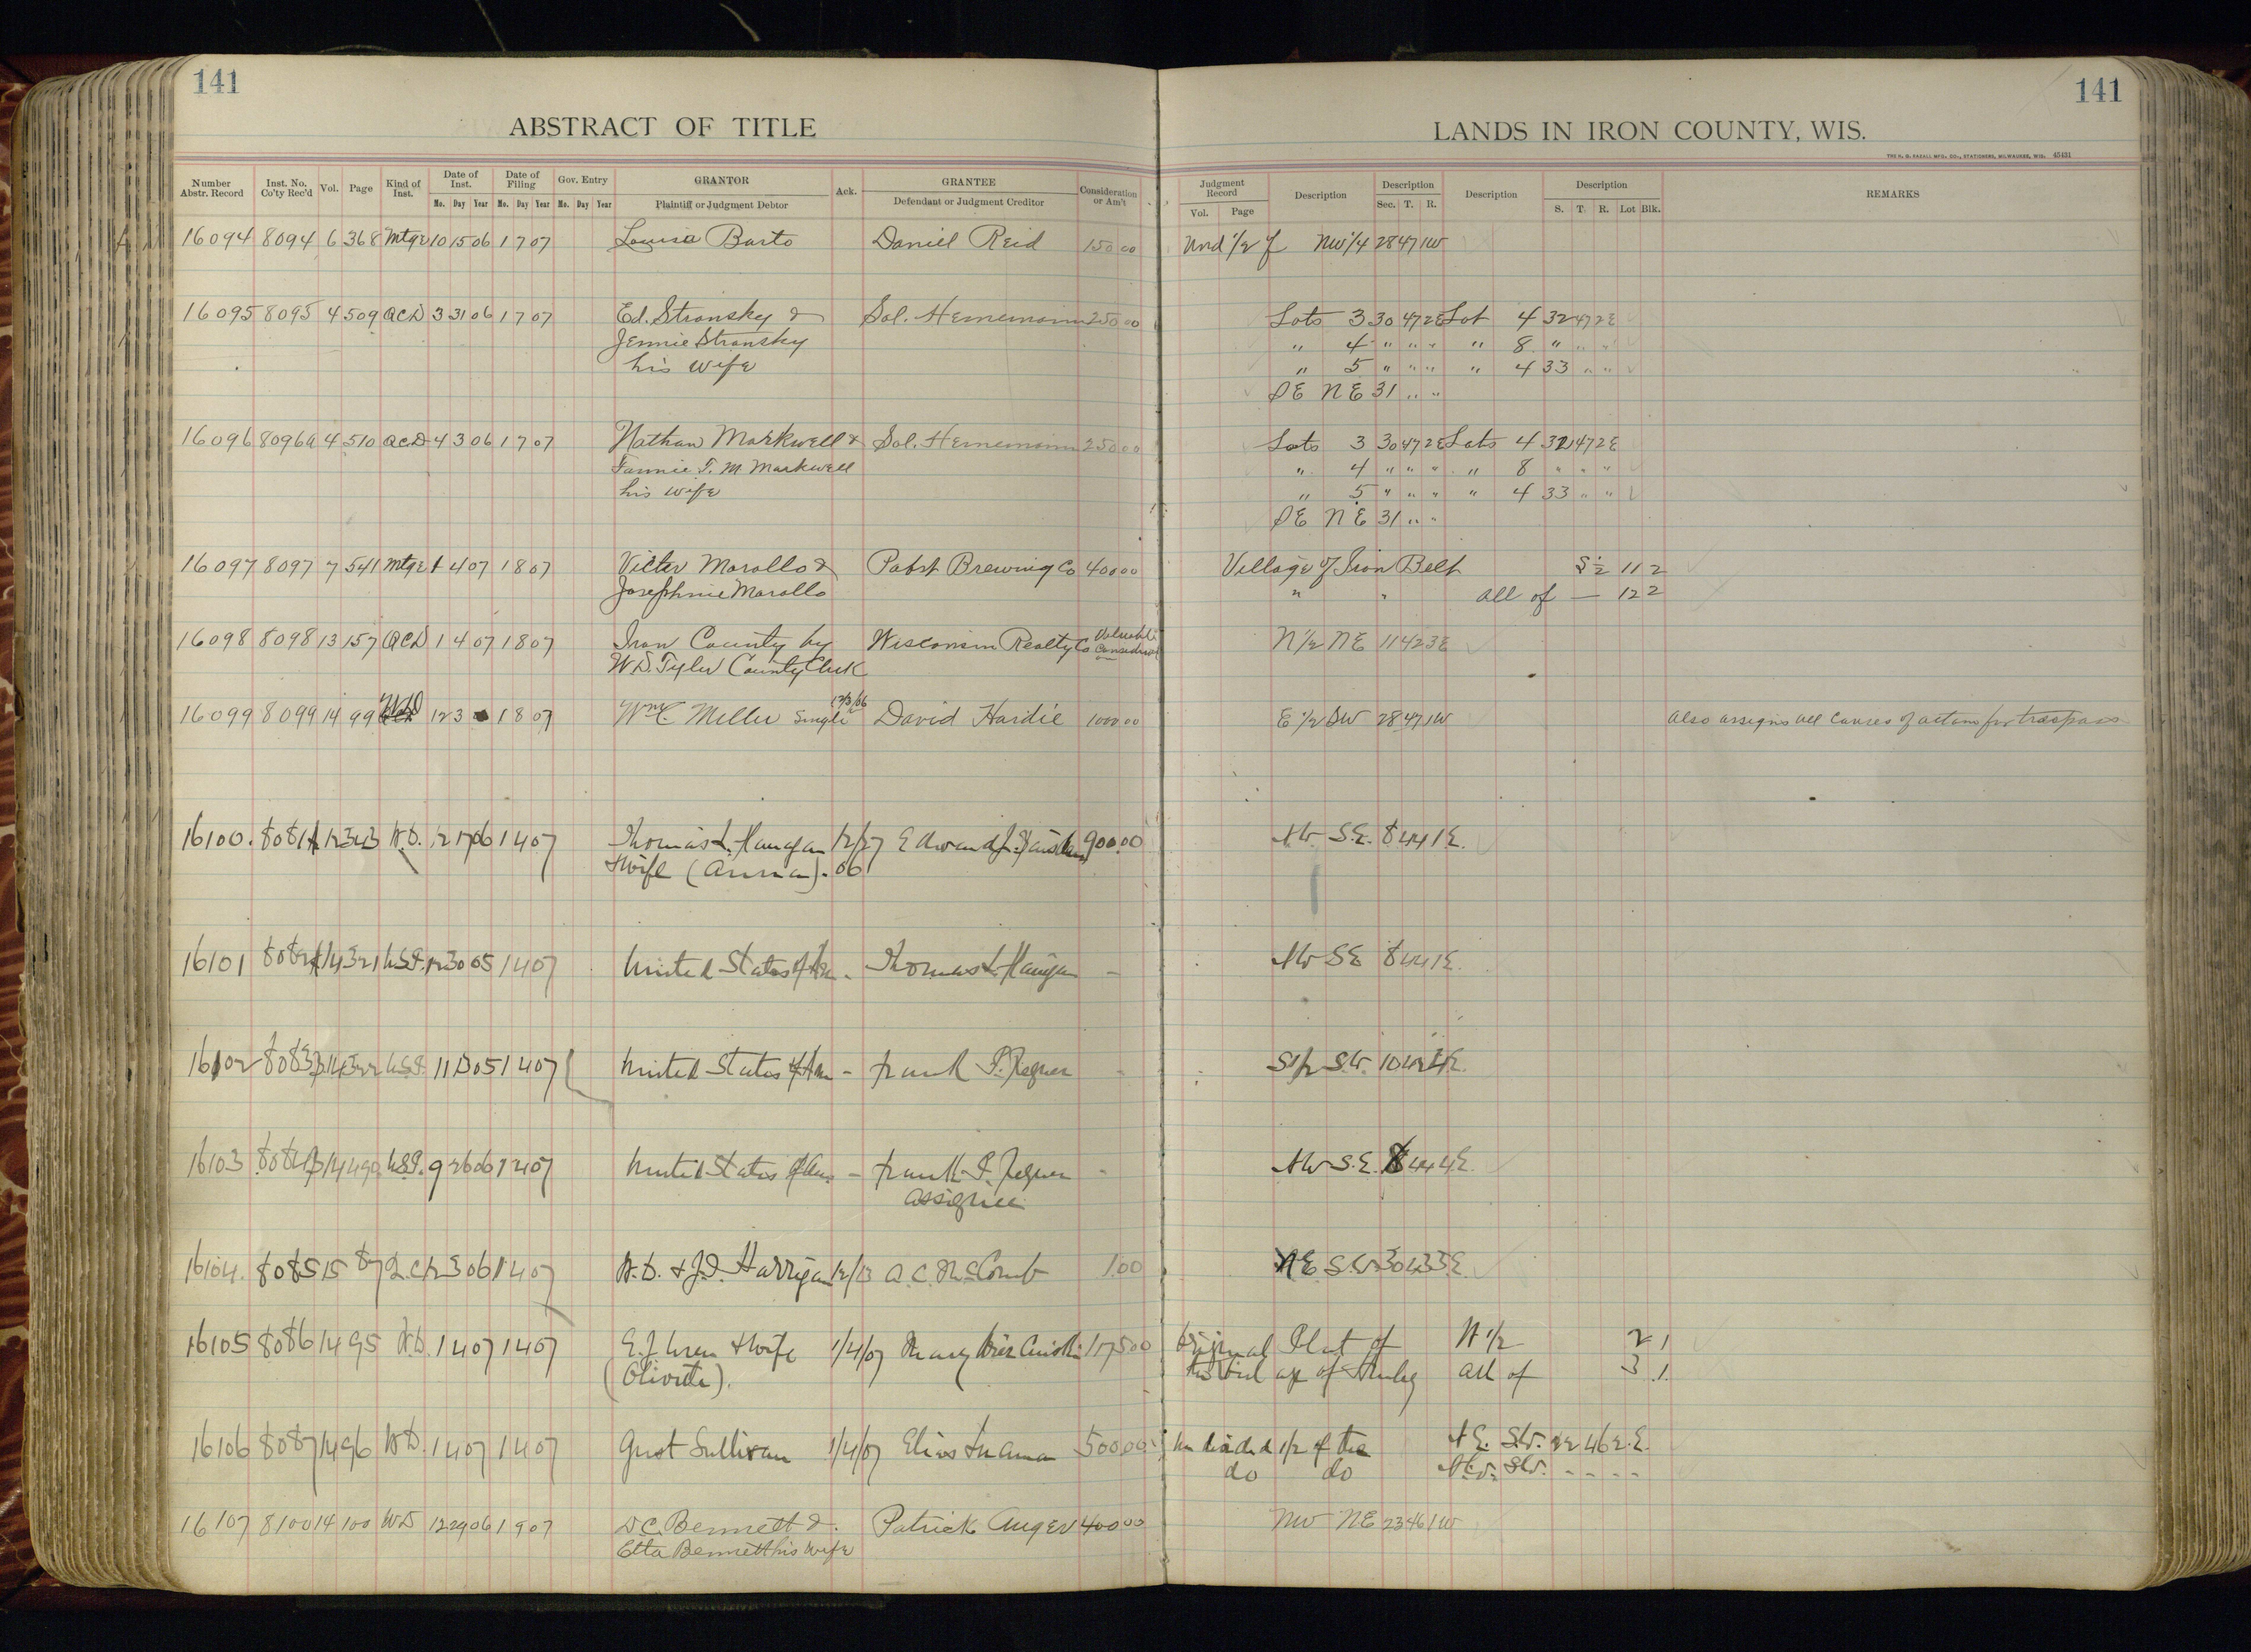 141
141
ABSTRACT OF TITLE
LANDS IN IRON COUNTY, WIS.
THE H. G. RAZALL MFG. CO., STATIONERS, MILWAUKEE, WIS. 45431
Number Abstr. Record Inst. No. Co'ty Rec'd Vol. Page Kind of Inst. Date of Inst. Date of Filing Gov. Entry GRANTOR Ack. GRANTEE Consideration or Am't Judgment Record Description Description Description Description REMARKS
Mo. Day Year Mo. Day Year Mo. Day Year Plaintiff or Judgment Debtor Defendant or Judgment Creditor Vol. Page Sec. T. R. S. T. R. Lot Blk.
16094 8094 6 368 Mtge 10 15 06 1 7 07 Louisa Barto Daniel Reid 150 00 Und 1/2 of NW 1/4 28 47 1W
16095 8095 4 509 QCD 3 31 06 1 7 07 Ed. Stransky & Sol. Heinemann 250 00 Lots 3 30 47 2E Lot 4 32 47 2E
Jennie Stransky " 4 " " " " 8 " " "
his wife " 5 " " " " 4 33 " "
SE NE 31 " "
16096 8096 4 510 QCD 4 3 06 1 7 07 Nathan Markwell & Sol. Heinemann 250 00 Lots 3 30 47 2E Lots 4 32 47 2E
Fannie T. M Markwell " 4 " " " " 8 " " "
his wife " 5 " " " " 4 33 " "
SE NE 31 " "
16097 8097 7 541 Mtge 1 4 07 1 8 07 Victor Morallo & Pabst Brewing Co 400 00 Village of Iron Belt S 1/2 11 2
Josephine Morallo " " all of — 12 2
16098 8098 13 157 QCD 1 4 07 1 8 07 Iron County by Wisconsin Realty Co Valuable Consideration N 1/2 NE 11 42 3E
W.D. Tyler County Clerk
16099 8099 14 99 WD 12 3 1 8 07 Wm. C. Miller Single 12/3/06 David Hardie 1000 00 E 1/2 SW 28 47 1W also assigns all causes of actions for trespass
16100. 8081 12 343 W.D. 12 17 06 1 4 07 Thomas L. 12/27 Edward J. 900.00 N.W. S.E. 8 44 1E.
& wife (Anna). 06
16101 8082 14 321 U.S.P. 12 30 05 1 4 07 United States of Am - Thomas L. - NW SE 8 44 1E.
16102 8083 14 322 U.S.P. 11 13 05 1 4 07 United States of Am - Frank P. - S 1/2 S.W. 10
16103 8084 14 U.S.P. 9 26 06 1 4 07 United States of Am. - Frank P. - NW S.E. 8 44 4E.
assignee
16104. 8085 15 87 Q.C. 12 3 06 1 4 07 W.D. & J.D. Harrigan 12/13 A.C. McComb 1.00 NE. S.W. 30 43 3E.
16105 8086 14 95 W.D. 1 4 07 1 4 07 E.J. & wife 1/4/07 Mary 175 00 Original Plat of N 1/2 2 1
(Olivette). the of all of 3 1.
16106 8087 14 96 W.D. 1 4 07 1 4 07 Gust Sullivan 1/4/07 Elias 500.00 Undivided 1/2 of the N.E. S.W. 22 46 2.E.
do do N.W. S.W. - - - -
16107 8100 14 100 WD 12 29 06 1 9 07 D.C. Bennett & Patrick Auger 400 00 NW NE 23 46 1W
Etta Bennett his wife